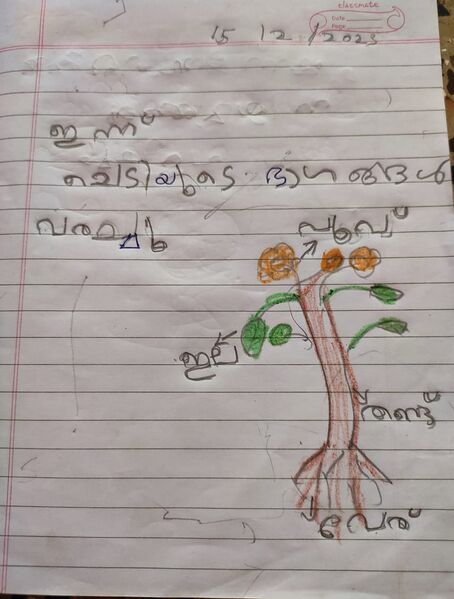 classmate
Date
Page
15/12/2023
ഇന്ന്
ചെടിയുടെ ഭാഗങ്ങൾ
വരച്ചു
പൂവ്
ഇല
തണ്ട്
വേര്